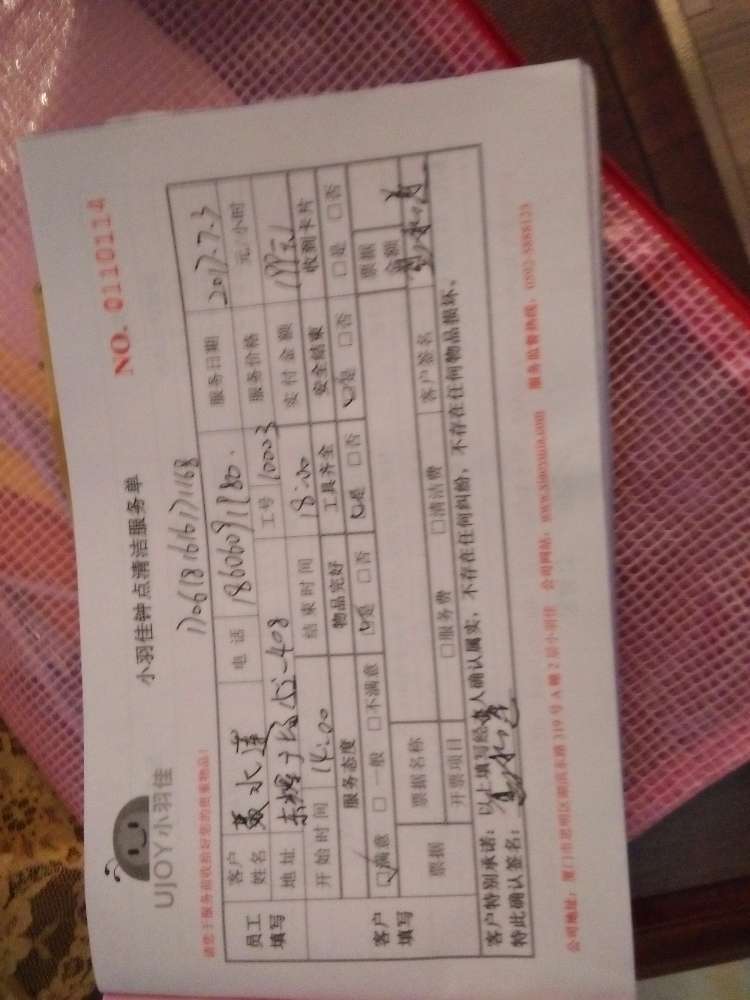 UJOY小羽佳
小羽佳钟点清洁服务单
NO. 0110114
请您于服务前收拾好您的贵重物品!
员工填写
客户姓名 聂水莲 电话 18606091180. 服务日期 2017.7.3
地址 55-408 工号 10003 服务价格 元/小时
开始时间 14:00 结束时间 18:00 实付金额
客户填写
服务态度 物品完好 工具齐全 安全结束 收到卡片
☑满意 □一般 □不满意 ☑是 □否 ☑是 □否 ☑是 □否 □是 □否
票据 票据名称 票据金额
开票项目 □服务费 □清洁费 客户签名
客户特别承诺: 以上填写经本人确认属实,不存在任何纠纷,不存在任何物品损坏。
特此确认签名:
公司地址: 厦门市思明区湖滨东路319号A幢2层小羽佳 公司网站: www.xiaoyujia.com 服务监督热线: 0592-5888123